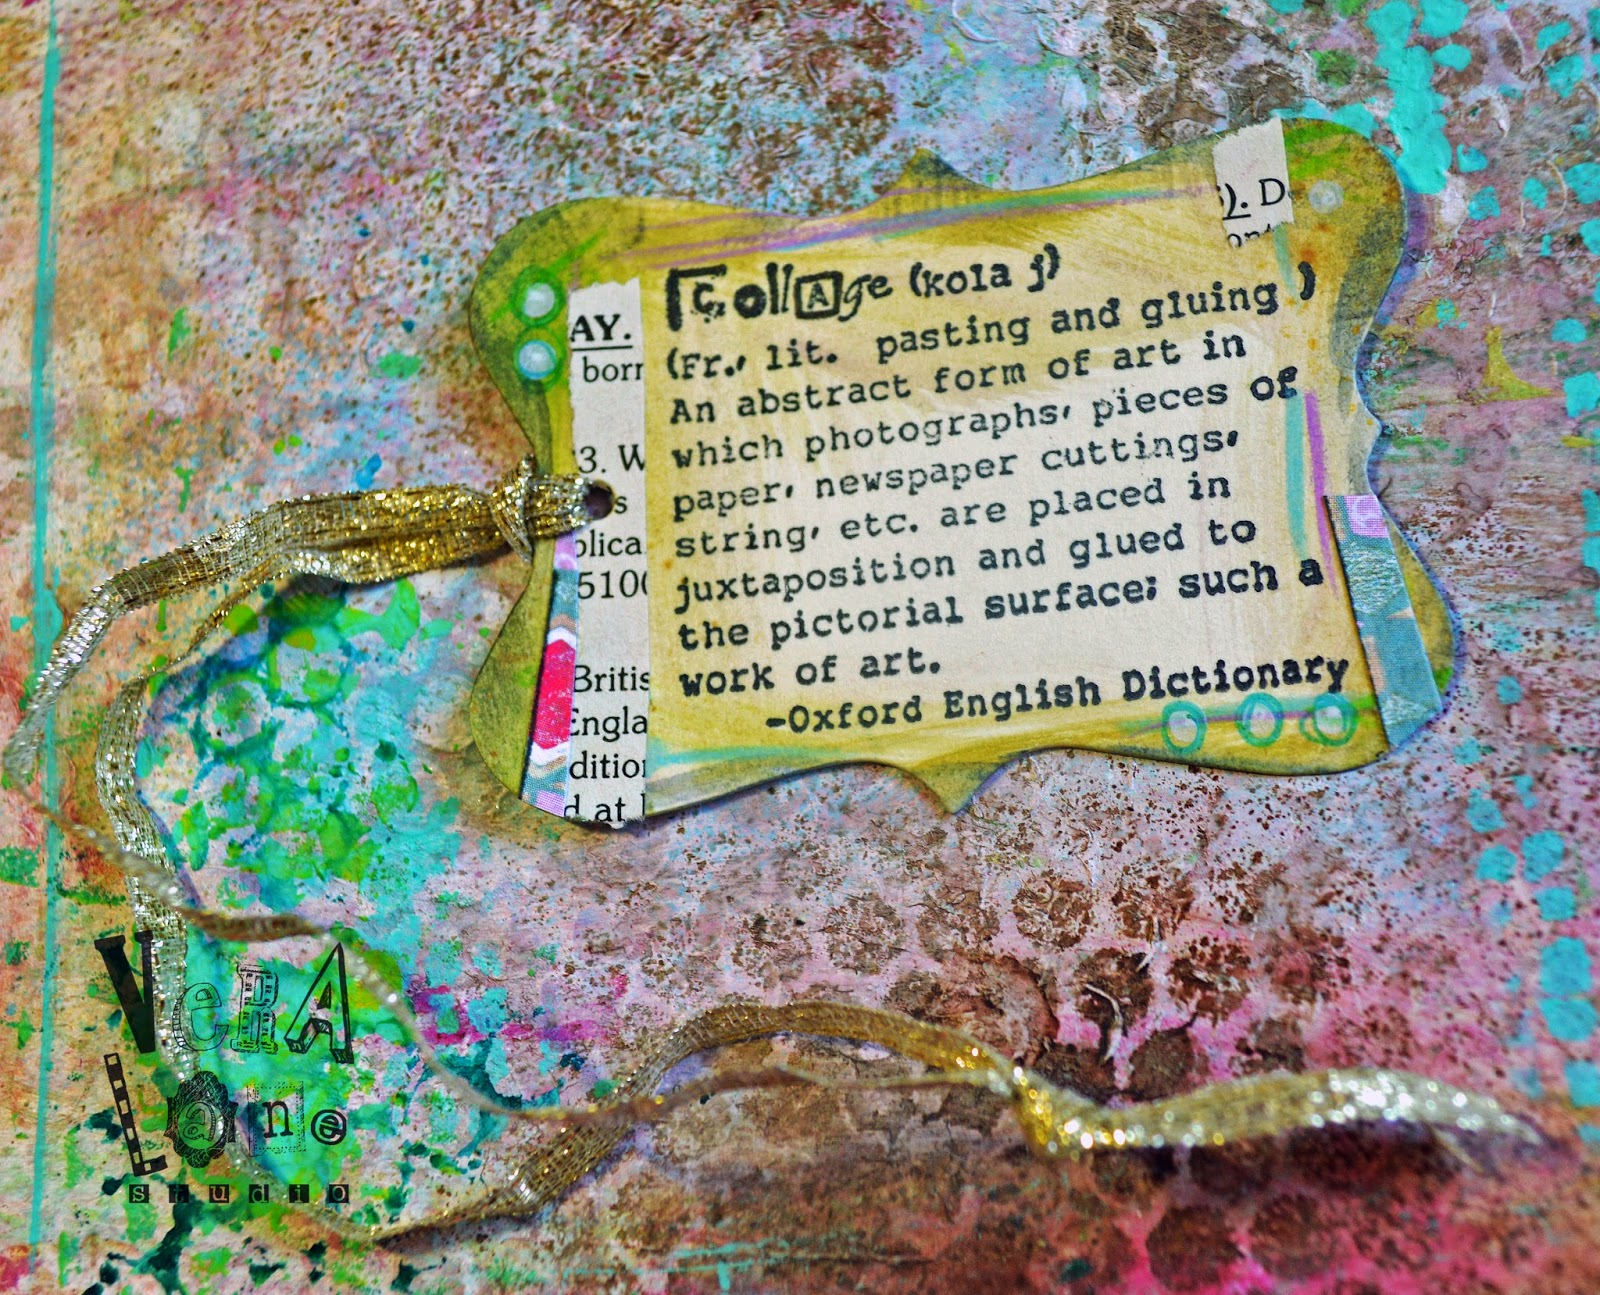 Collage (kola j)
(Fr., lit. pasting and gluing )
An abstract form of art in
which photographs, pieces of
paper, newspaper cuttings,
string, etc. are placed in
juxtaposition and glued to
the pictorial surface; such a
work of art.
-Oxford English Dictionary
AY.
born
3. W
s
plica
5100
Britis
Engla
dition
d at
). D
ont
VeRA
Lane
studio